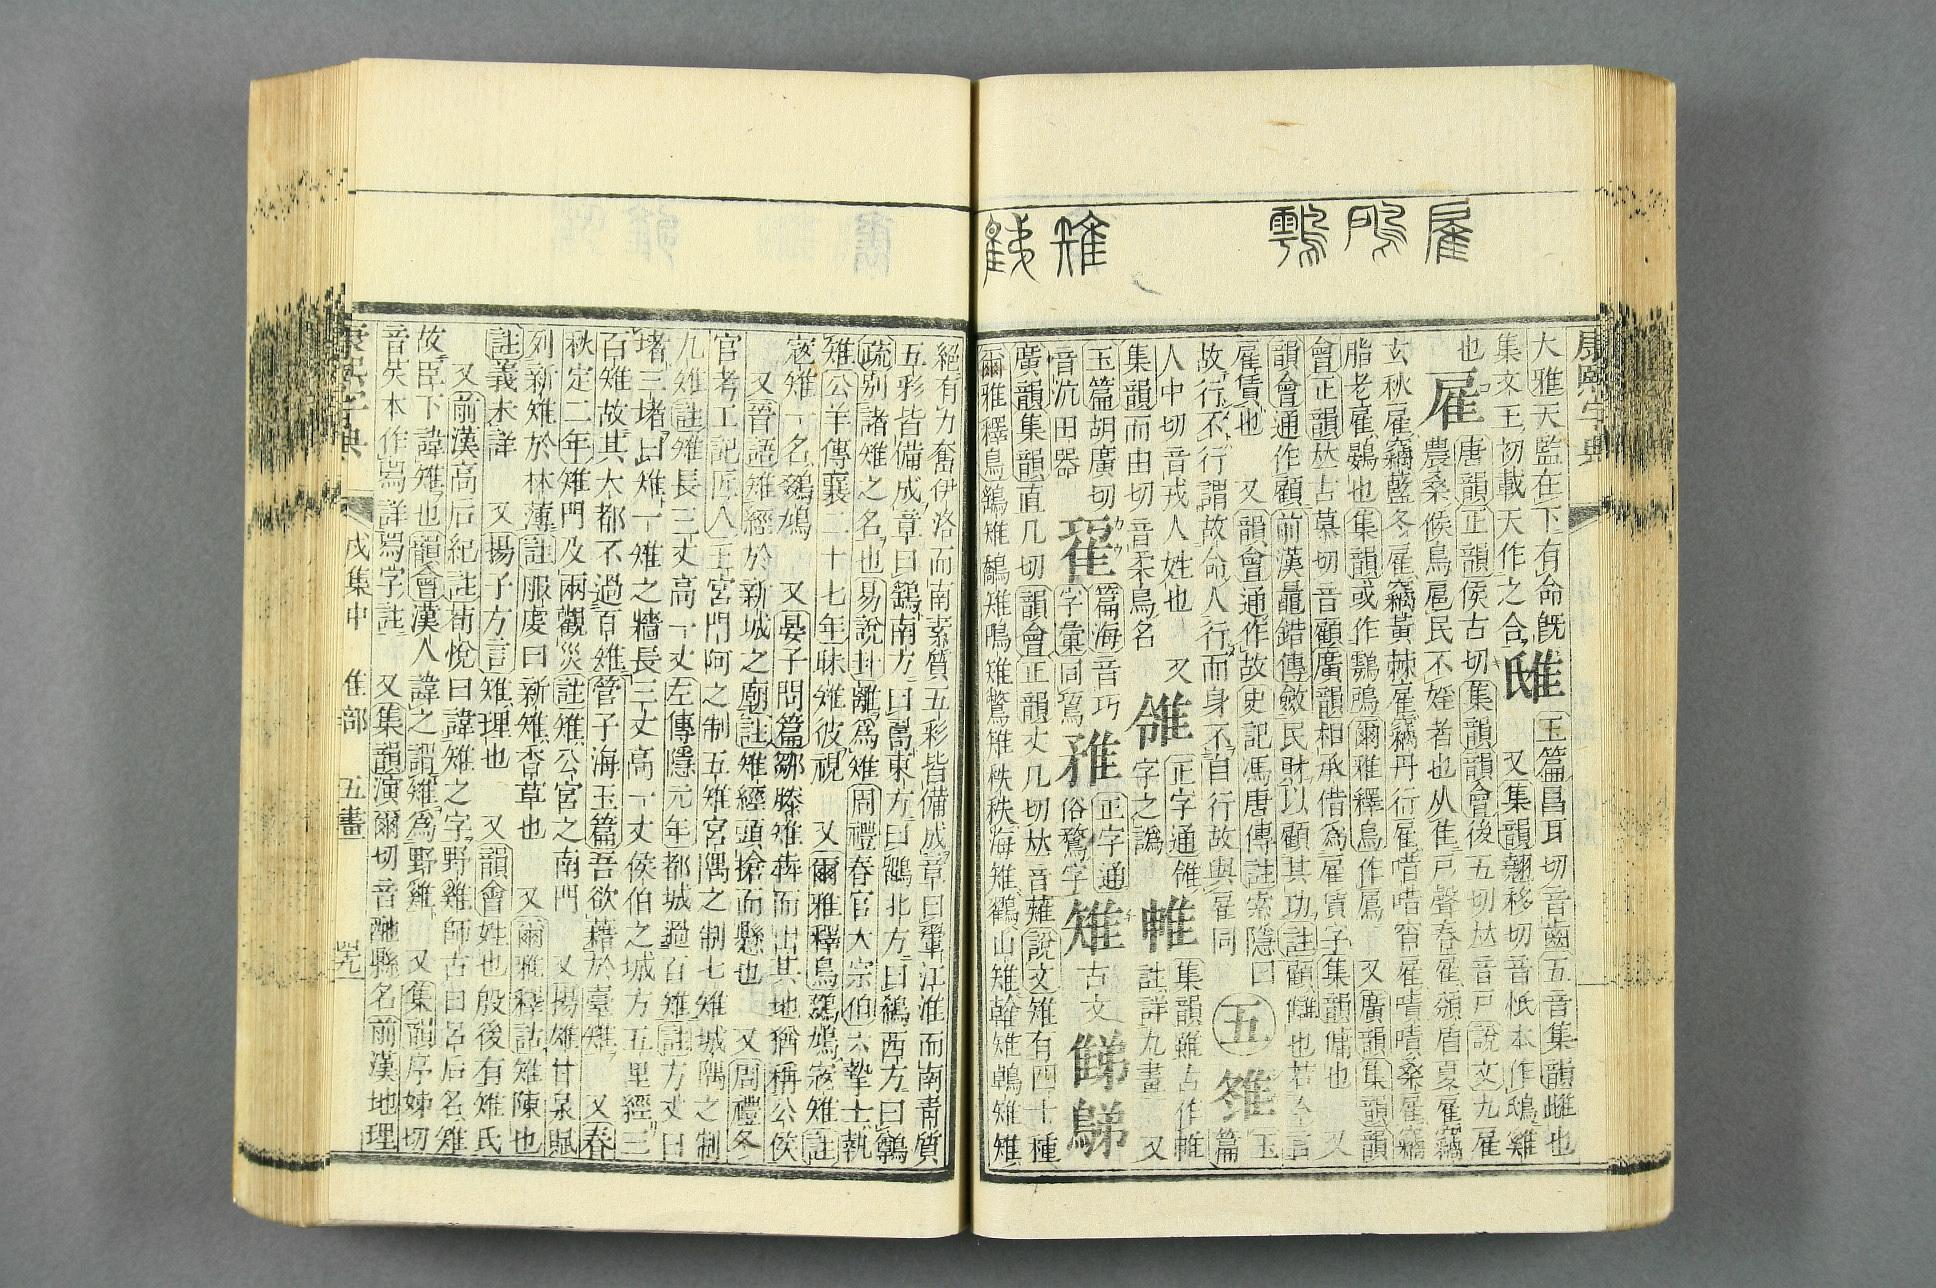 康熙字典
大雅天監在下有命旣 玉篇昌耳切音齒五音集韻雌也
集文王初載天作之合 又集韻翹移切音怟本作鴟雞
也 雇 唐韻正韻侯古切集韻韻會後五切𠀤音戸說文九雇
農桑候鳥扈民不婬者也从隹戸聲春雇鳻盾夏雇竊
玄秋雇竊藍冬雇竊黃棘雇竊丹行雇唶唶宵雇嘖嘖桑雇竊
脂老雇鷃也集韻或作 爾雅釋鳥作鳸 又廣韻集韻韻
會正韻𠀤古慕切音顧廣韻相承借爲雇賃字集韻傭也 又
韻會通作顧前漢鼂錯傳斂民財以顧其功註顧讎也若今言
雇賃也 又韻會通作故史記馮唐傳註索隱曰 五 玉
故行不行謂故命人行而身不自行故與雇同 篇
人中切音戎人姓也 又 正字通 集韻雖古作帷
集韻而由切音柔鳥名 字之譌 帷 註詳九畫 又
玉篇胡廣切 篇海音巧 正字通
音沆田器 字彙同 俗鶩字 雉 古文
廣韻集韻直几切韻會正韻丈几切𠀤音薙說文雉有四十種
爾雅釋鳥鷂雉鷮雉鳪雉鷩雉秩秩海雉鸐山雉雗雉鵫雉雉
絕有力奮伊洛而南素質五彩皆備成章曰翬江淮而南靑質
五彩皆備成章曰鷂南方曰𠷎東方曰鶅北方曰鵗西方曰鷷
疏別諸雉之名也易說卦離爲雉周禮春官大宗伯六摯士執
雉公羊傳襄二十七年昧雉彼視 又爾雅釋鳥鷚鳩寇雉註
寇雉一名鷚鳩 又晏子問篇鄒滕雉奔而出其地猶稱公侯
又晉語雉經於新城之廟註雉經頭搶而懸也 又周禮冬
官考工記匠人王宮門阿之制五雉宮隅之制七雉城隅之制
九雉註雉長三丈高一丈左傳隱元年都城過百雉註方丈曰
堵三堵曰雉一雉之牆長三丈高一丈侯伯之城方五里徑三
百雉故其大都不過百雉管子海玉篇吾欲藉於臺雉 又春
秋定二年雉門及兩觀災註雉公宮之南門 又揚雄甘泉賦
列新雉於林薄註服虔曰新雉香草也 又爾雅釋詁雉陳也
註義未詳 又揚子方言雉理也 又韻會姓也殷後有雉氏
又前漢高后紀註荀悅曰諱雉之字野雞師古曰呂后名雉
故臣下諱雉也韻會漢人諱之謂雉爲野雞 又集韻序姊切
音 本作舄詳舄字註 又集韻演爾切音酏縣名前漢地理
康熙字典 戌集中 隹部 五畫